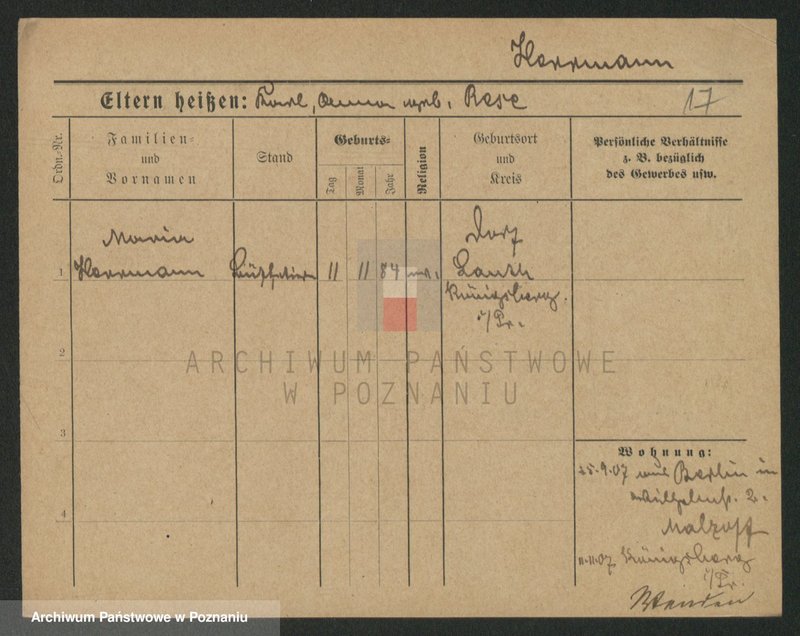 Herrmann
Eltern heißen: Karl, Anna geb. Rese 17
Ordn.-Nr.
Familien-
und
Vornamen
Stand
Geburts-
Tag
Monat
Jahr
Religion
Geburtsort
und
Kreis
Persönliche Verhältnisse
z. B. bezüglich
des Gewerbes usw.
Maria
Herrmann
1
Büfettiere
11 11 84 ev.
Dorf
Lauth
Königsberg
i/Pr.
2
3
4
ARCHIWUM PAŃSTWOWE
W POZNANIU
Wohnung:
25.9.07 aus Berlin in
Wilhelmst. 2.
11.11.07 Königsberg
i/Pr.
Archiwum Państwowe w Poznaniu